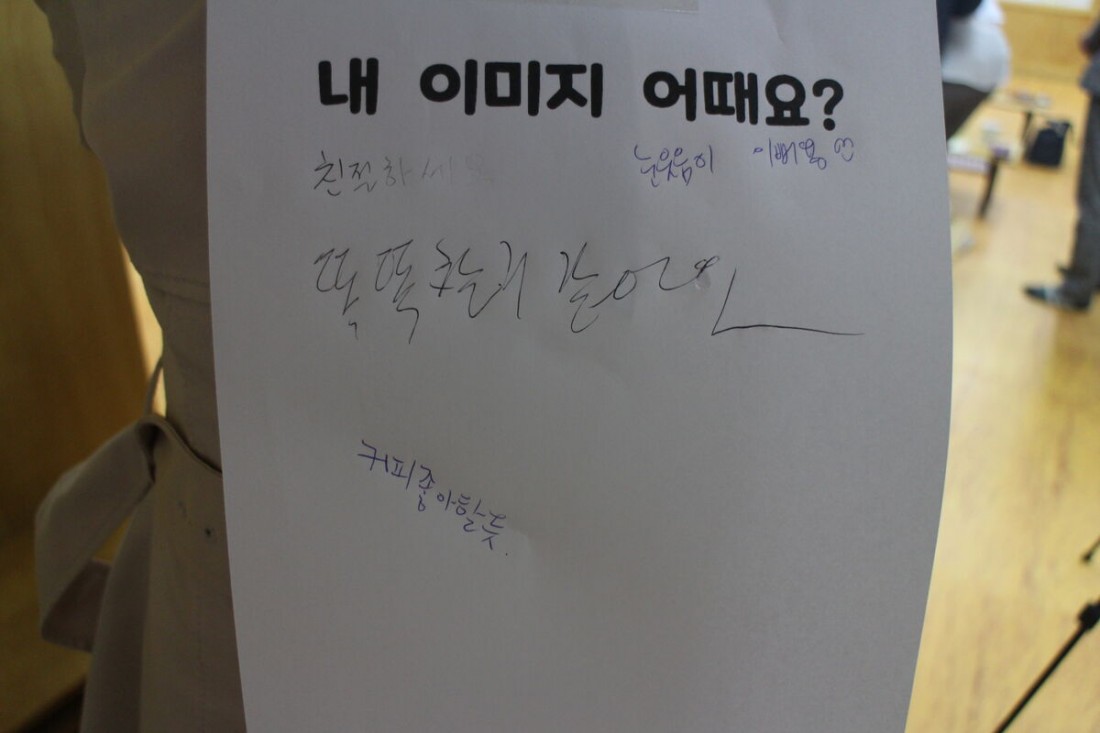 내 이미지 어때요?
친절하세요
눈웃음이 이뻐용
똑똑할거 같아요
커피좋아할듯.